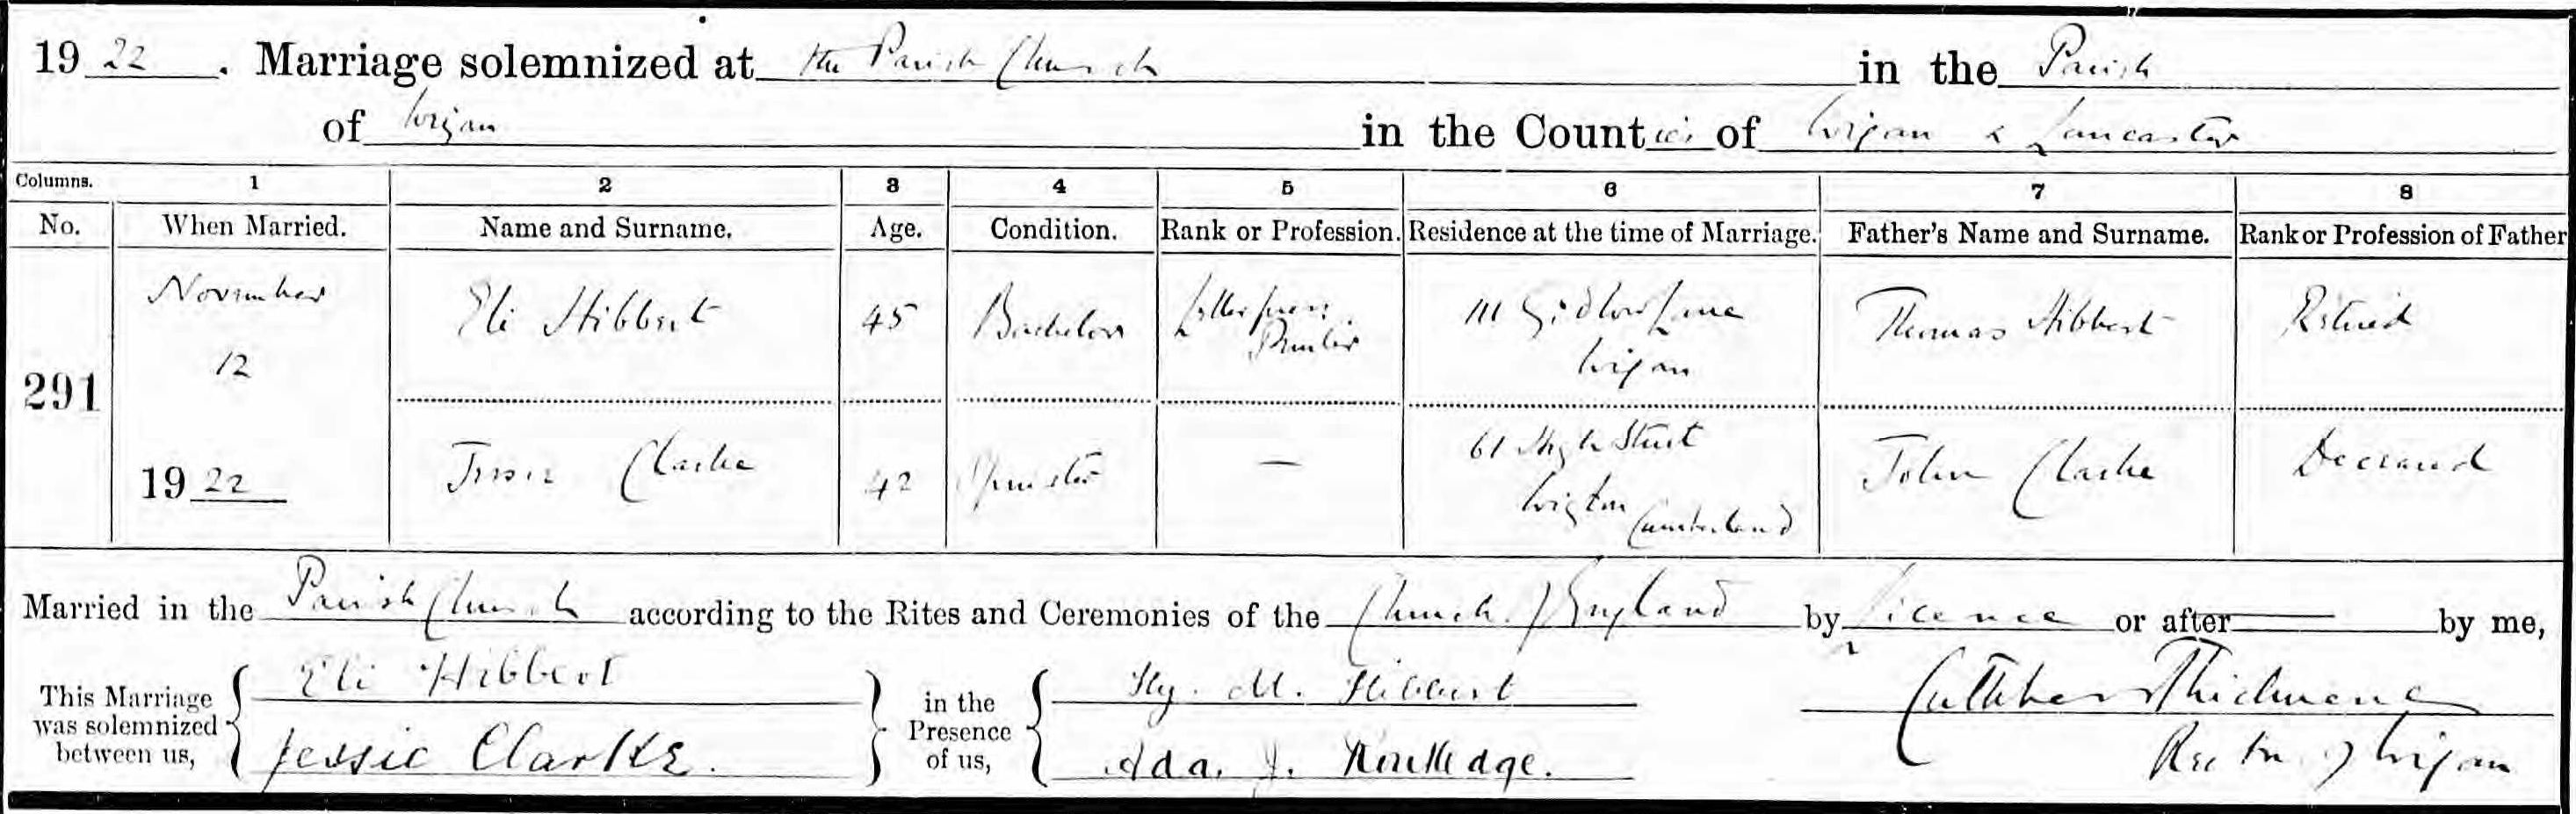 1922. Marriage solemnized at the Parish Church in the Parish
of Wigan in the Counties of Wigan & Lancaster
Columns. 1 2 3 4 5 6 7 8
No. When Married. Name and Surname. Age. Condition. Rank or Profession. Residence at the time of Marriage. Father's Name and Surname. Rank or Profession of Father
291
November
12
1922
Eli Hibbert 45 Bachelor Letterpress
Printer
111 Gidlow Lane
Wigan
Thomas Hibbert Retired
Jessie Clarke 42 Spinster — 61 High Street
Wigton Cumberland
John Clarke Deceased
Married in the Parish Church according to the Rites and Ceremonies of the Church of England by Licence or after by me,
This Marriage
was solemnized
between us,
Eli Hibbert
Jessie Clarke.
in the
Presence
of us,
Hy. M. Hibbert
Ada. J. Routledge.
Cuthbert Thicknesse
Rector of Wigan